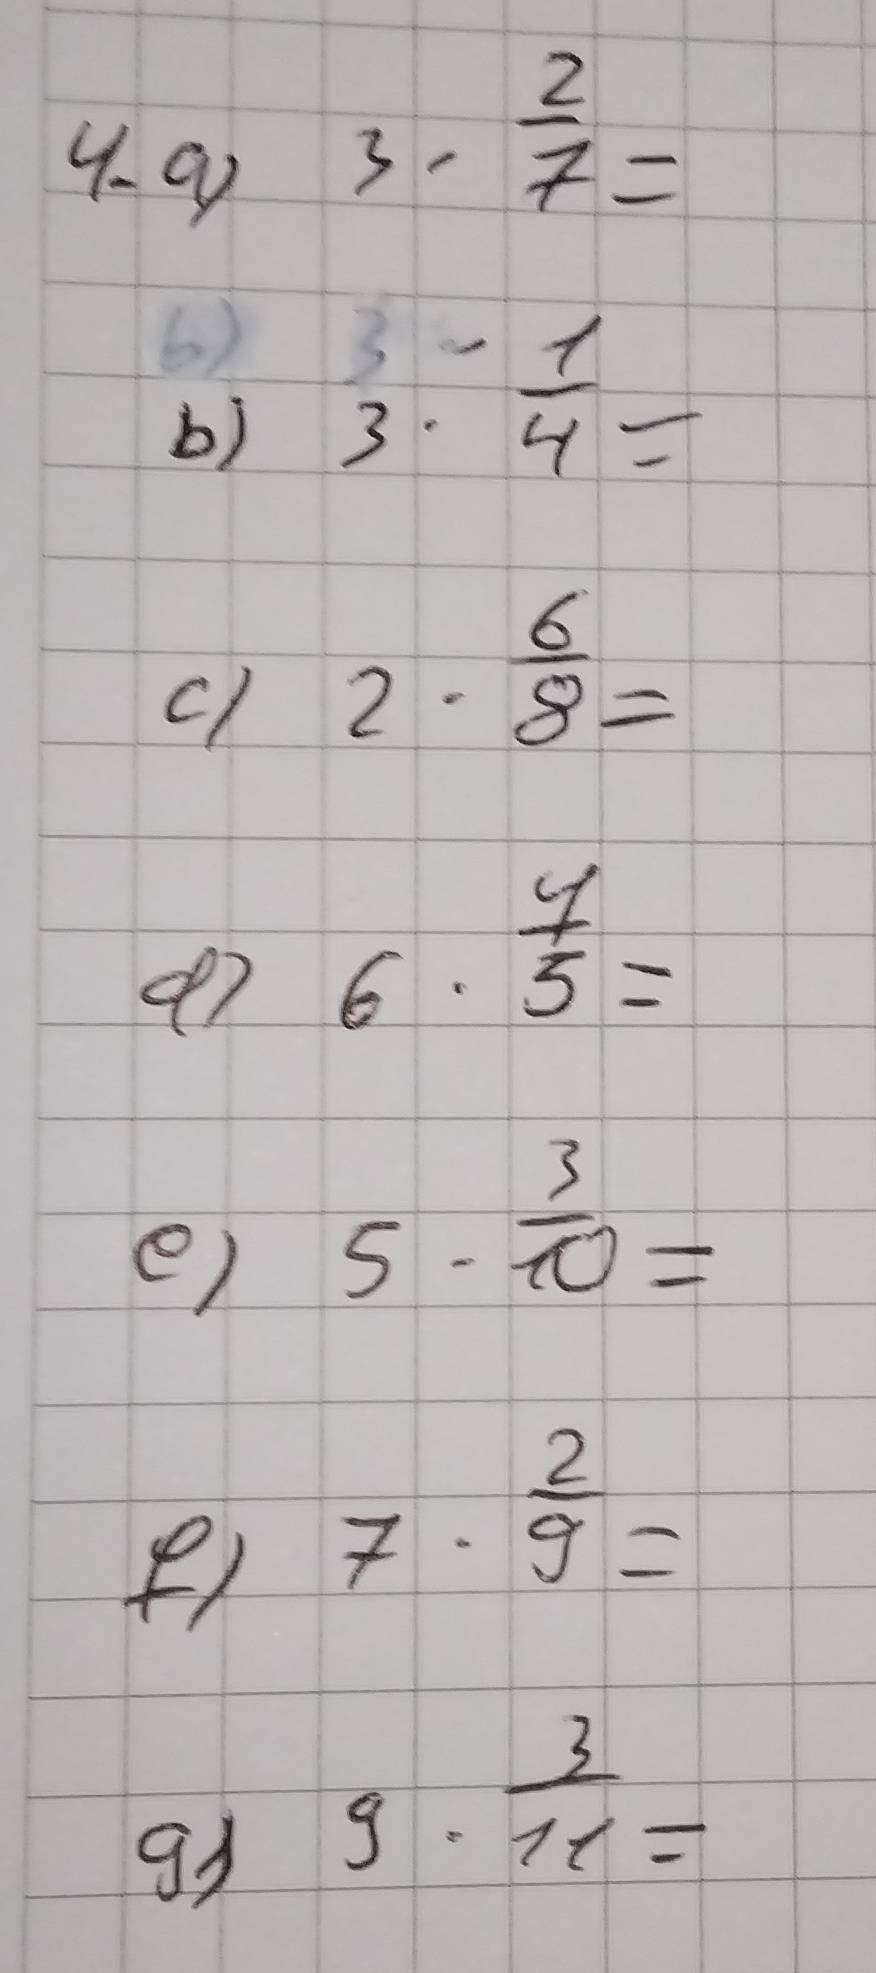 4. a) 3 · 2/7 =
b) 3 · 1/4 =
c) 2 · 6/8 =
d) 6 · 4/5 =
e) 5 · 3/10 =
f) 7 · 2/9 =
g) 9 · 3/11 =